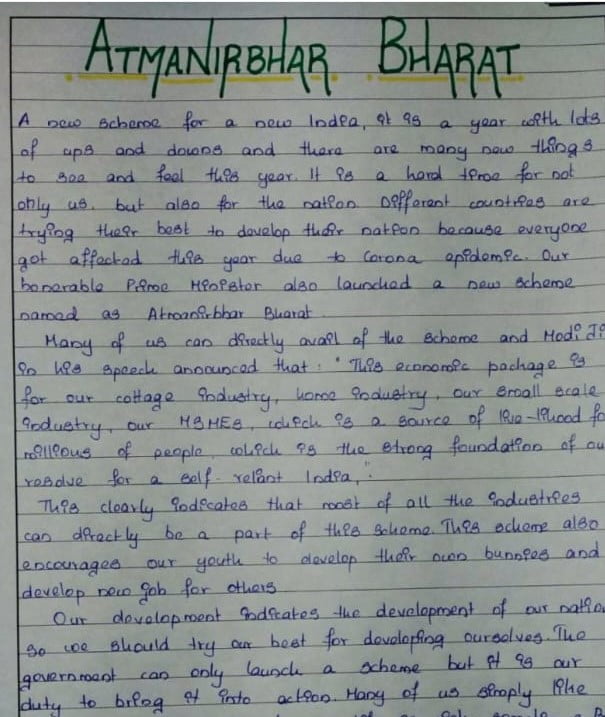 ATMANIRBHAR BHARAT
A new scheme for a new India, it is a year with lots
of ups and downs and there are many new things
to see and feel this year. It is a hard time for not
only us, but also for the nation Different countries are
trying their best to develop their nation because everyone
got affected this year due to Corona epidemic. Our
honerable Prime Minister also launched a new scheme
named as Atmanirbhar Bharat
Many of us can directly avail of the scheme and Modi Ji
in his speech announced that: "This economic package is
for our cottage industry, home industry, our small scale
industry, our MSMES, which is a source of live-lihood fo
millions of people, which is the strong foundation of ou
resolve for a self-reliant India,".
This clearly indicates that most of all the industries
can directly be a part of this scheme. This scheme also
encourages our youth to develop their own and
develop new job for others
Our development indicates the development of our nation
so we should try our best for developing ourselves. The
government can only launch a scheme but it is our
duty to bring it into action. Many of us simply like